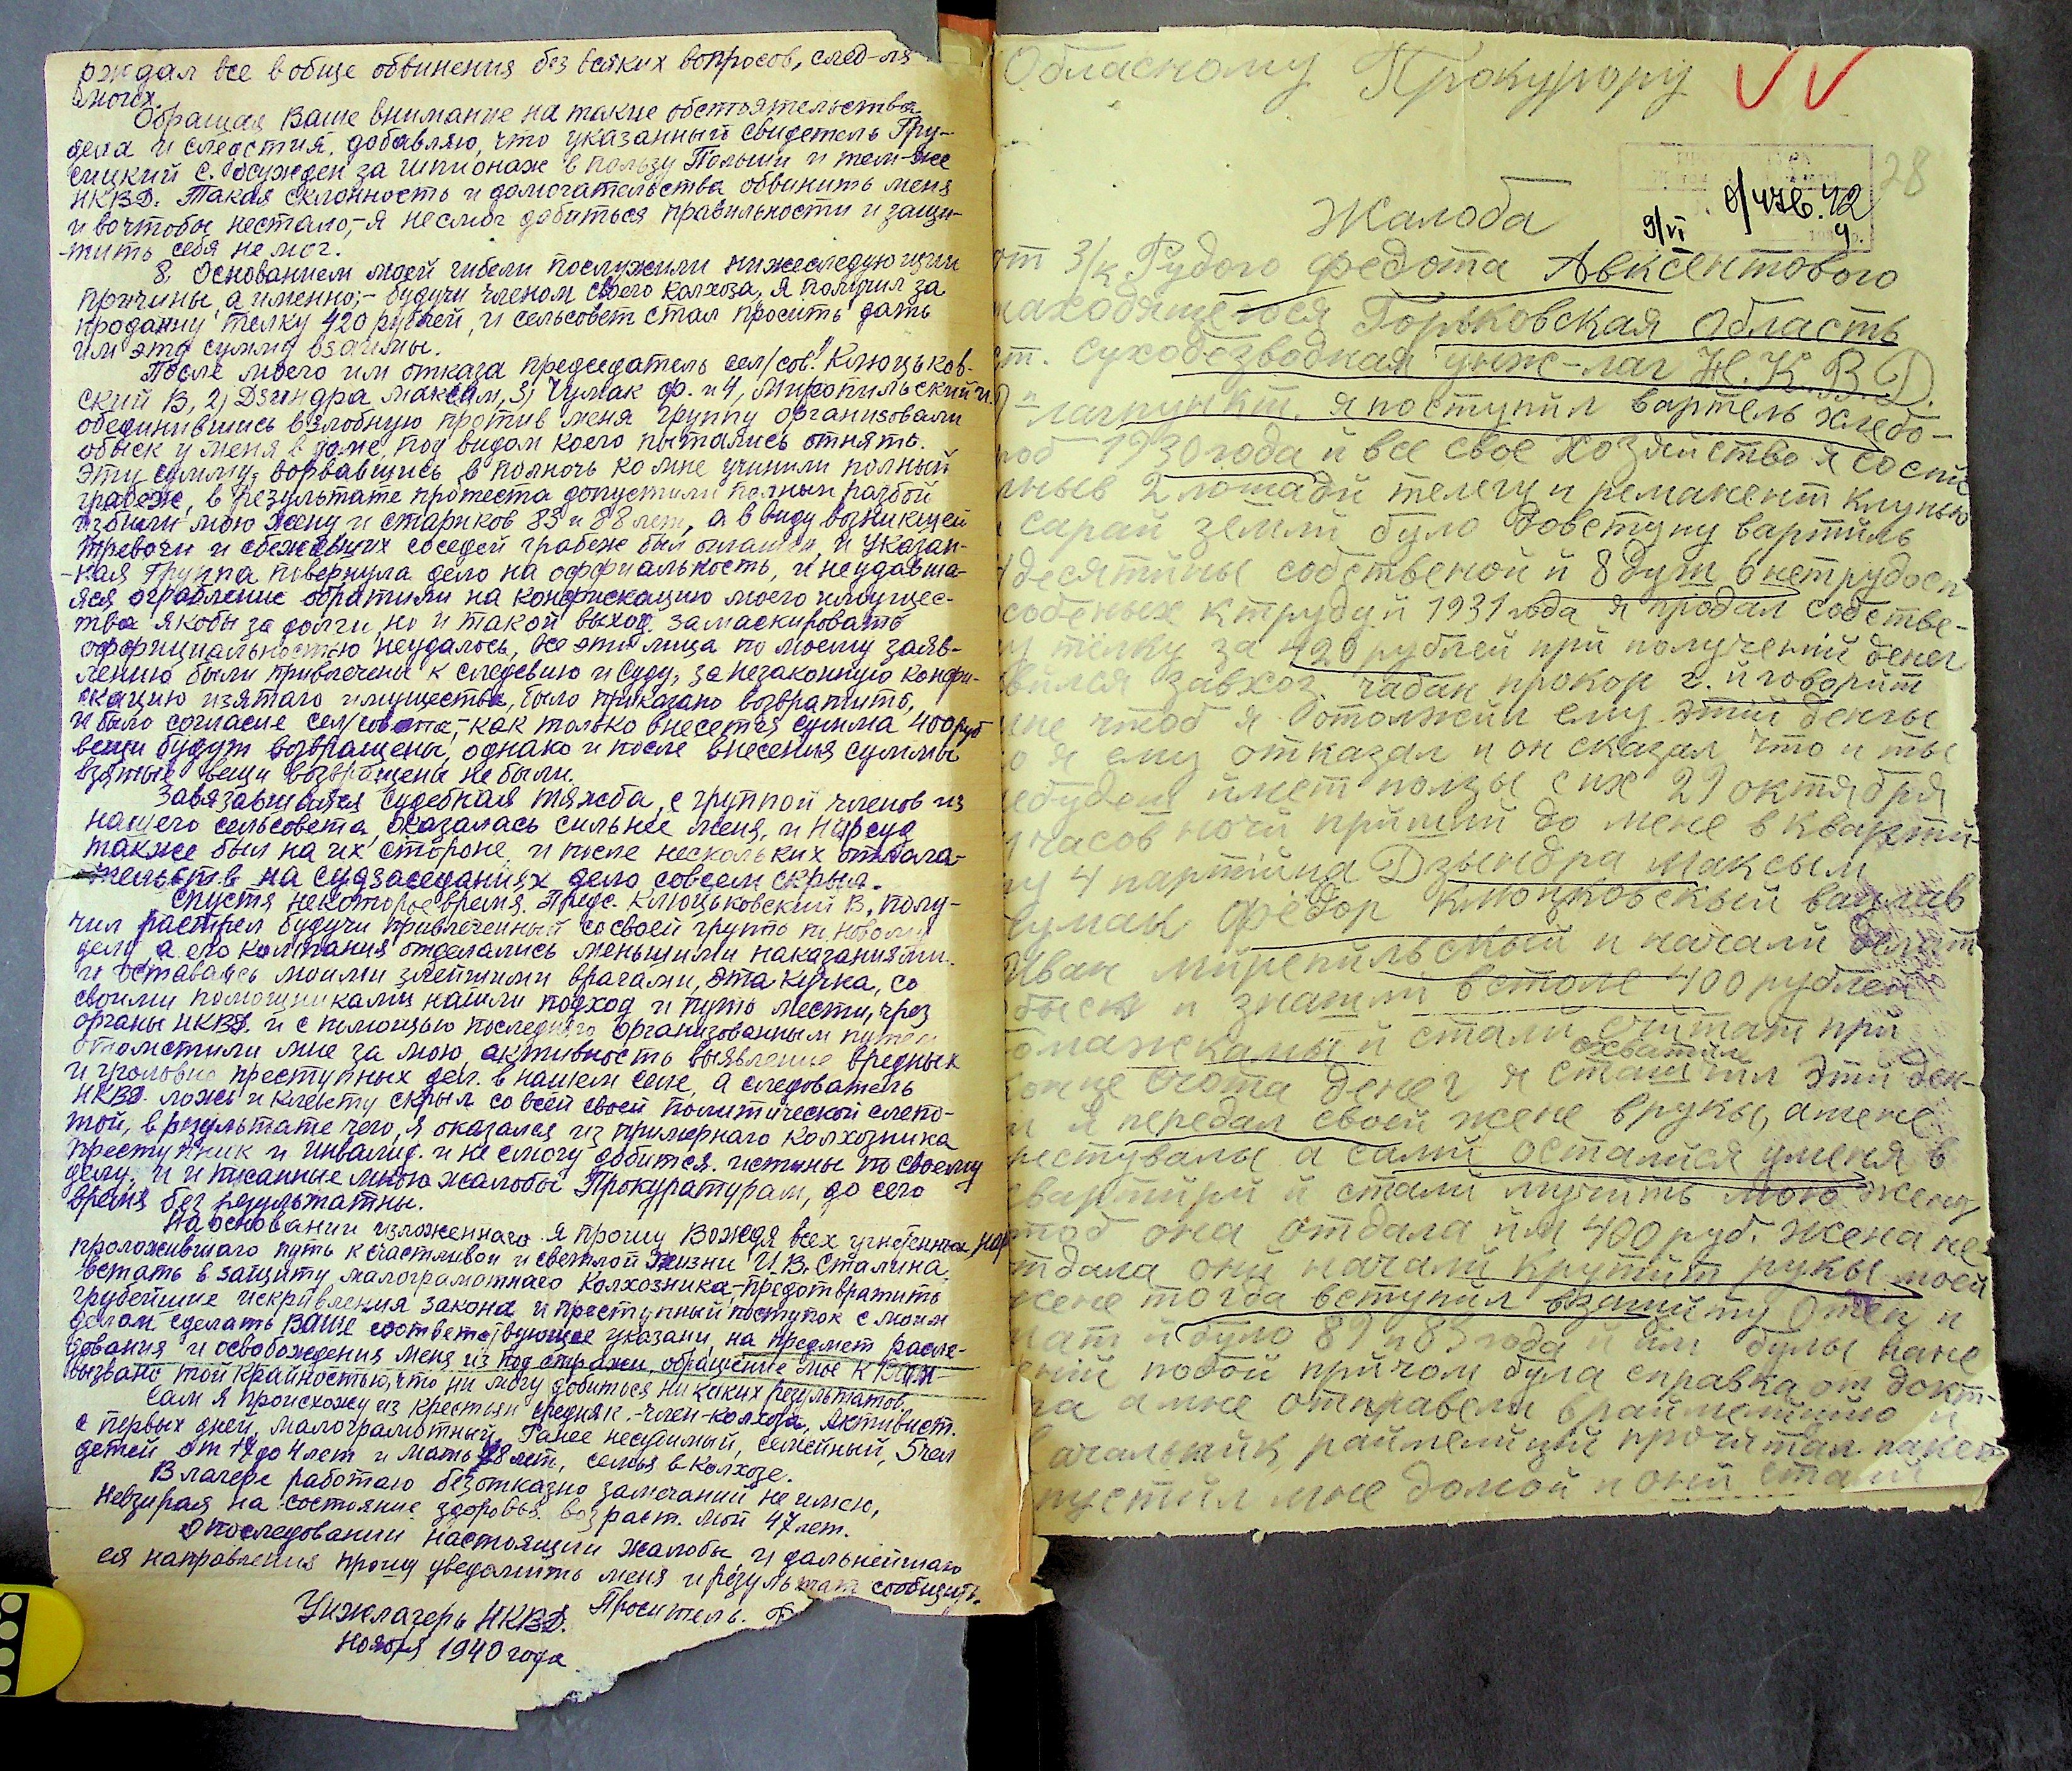 рждал все вобще обвинения без всяких вопросов, след-ля
многих.
Обращая Ваше внимание на такие обстоятельства
дела и следствия, добавляю, что указанный свидетель Гру-
сицкий С. осужден за шпионаж в пользу Польши и тем-же
НКВД. Такая склонность и домогательства обвинить меня
и вочтобы нестало,- я несмог добиться правильности и защи-
-тить себя не мог.
8. Основанием моей гибели послужили нижеследующии
причины, а именно;- будучи членом своего колхоза, я получил за
проданну телку 420 рублей, и сельсовет стал просить дать
им эта сумму взаимы.
После моего им отказа председатель сел/сов. Ключьков-
ский В, 2, Дзиндра Максим, 3, Чумак Ф. и 4, Миропильский И.
обединившись взлобную против меня группу организовали
обыск у меня в доме, под видом коего пытались отнять.
эту сумму, ворвавшись в полночь ко мне учинили полный
грабеж, в результате протеста допустили полный разбой
избили мою жену и стариков 83 и 88 лет, а в виду возникшей
тревоги и сбежавших соседей грабеж был оглашен, и указан-
-ная группа повернула дело на оффиальность, и неудавша-
яся ограбление обратили на конфискацию моего имущес-
тва якобы за долги, но и такой выход замаскировать
официальностью неудалось, все эти лица по моему заяв-
лению были привлечены к следсвию и суду, за незаконную конфи-
скацию изятаго имущества, было приказано возвратить,
и было согласие сел/совета,- как только внесется сумма 400 руб
вещи будут возвращены, однако и после внесения суммы
взятые вещи возвращены не были.
Завязавшаяся судебная тяжба, с группой членов из
нашего сельсовета, оказалась сильнее меня, и Нарсуд
также был на их стороне, и после нескольких отлага-
тельств на судзаседаниях дело совсем скрыл.
Спустя некоторое время. Предс. Ключьковский В, полу-
чил растрел будучи привлеченный со своей групой по новому
делу, а его компания отделались меньшими наказаниями.
и оставаясь моими злейшими врагами, эта кучка, со
своими помощниками нашли подход и путь мести, чрез
органы НКВД. и с помощью последняго организованным путем
отомстили мне за мою активность выявление вредных
и уголовно преступных дел. в нашем селе, а следователь
НКВД. ложь и клевету скрыл со всей своей политической слепо-
той, в результате чего, я оказался из примернаго колхозника
преступник и инвалид. и не смогу добится. истины по своему
делу, и и писанные мною жалобы Прокуратурам, до сего
время без результатны.
На основании изложеннаго я прошу Вождя всех угнетенных нар
проложившаго путь к счастливой и светлой жизни И.В. Сталина,
встать в защиту малограмотнаго колхозника-предотвратить
грубейшие искривления закона и преступный поступок с моим
делом сделать ВАШЕ соответствующее указани, на предмет рассле-
дования и освобождения меня из под стражи, обращение мое к ВАМ-
вызвано той крайностью, что ни могу добиться ни каких результатов.
Сам я происхожу из крестьян средняк.-член-колхоза, активист.
с первых дней, малограмотный. Ранее несудимый, семейный, 5 чел
детей от 17 до 4 лет и мать 88 лет, семья в колхозе.
В лагере работаю безотказно замечаний не имею,
невзирая на состояние здоровья. возраст. мой 47 лет.
О последовании настоящии жалобы, и дальнейшаго
ея направления прошу уведомить меня и результат сообщить.
Унжлагерь НКВД. Проситель.
Ноября 1940 года
Обласному Прокурору
28
Жалоба
9/VI
от з/к Рудого федота Авксентового
находящегося Горьковская Область
ст. Суходезводная унж-лаг Н.К.В.Д.
лагпункт. я поступил вартель хлебо-
роб 1930 года и все свое хозяйство я сосни
2 лошади телегу и реманент клуню
и сарай земли було довступу вартиль
десятины собственой и 8 душ 6 нетрудосп
собеных ктруду и 1931 года я продал собстве-
у телку за 420 рублей при получений денег
вился завхоз чабан прокор г. и говорит
мне чтоб я отолжил ему этий деньгы
о я ему отказал и он сказал что и ты
небудеш имет ползы с их 29 октября
часов ночи прийшли до мене в кварти-
ру 4 партийца Дзындра Максым
Чумак федор Клюцковскый вацлав
Иван Миренильскый и начали делат
обыск и знашли встоле 400 рублей
бомажкамы и стали считат при
охватил
конце счота денег я стащил этий ден-
и я передал своей жене врукы, а мене
рестувалы а самй осталйся уменя в
квартйри й стали мучить мою жену
чтоб она отдала йм 400 руб. жена не
отдала онй начали крутйт рукы моей
жене тогда вступил взащйту Отец и
мат й було 89 и 83 года й йм булы нане
ений побой прйчом була справка от докт-
ра а мне отправели враймелйцию и
ачальнйк раймелиций прочитал пакет
пустйл мне домой и онй стали